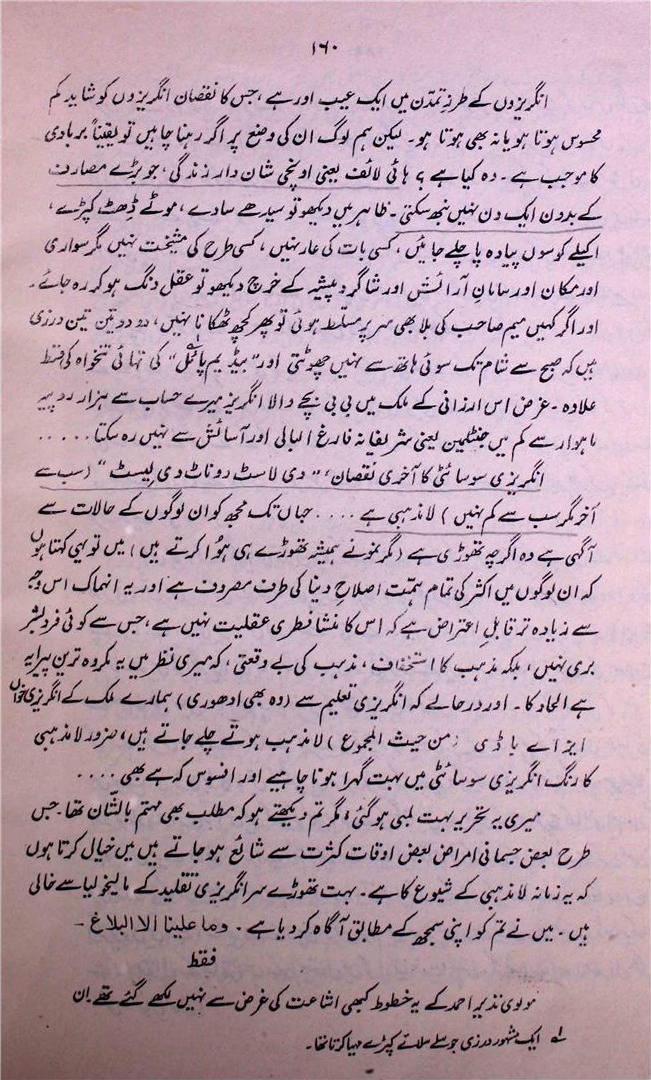 ۱۶۰
انگریزوں کے طرزِ تمدّن میں ایک عیب اور ہے، جس کا نقصان انگریزوں کو شاید کم
محسوس ہوتا ہو یا نہ بھی ہوتا ہو۔ لیکن ہم لوگ ان کی وضع پر اگر رہنا چاہیں تو یقیناً بربادی
کا موجب ہے۔ وہ کیا ہے؟ ہائی لائف یعنی اونچی شان دار زندگی، جو بڑے مصارف
کے بدون ایک دن نہیں نبھ سکتی۔ ظاہر میں دیکھو تو سیدھے سادے، موٹے ڈھٹ کپڑے،
اکیلے کوسوں پیادہ پا چلے جائیں، کسی بات کی عار نہیں، کسی طرح کی مشیخت نہیں مگر سواری
اور مکان اور سامانِ آرائش اور شاگرد پیشہ کے خرچ دیکھو تو عقل دنگ ہو کر رہ جائے۔
اور اگر کہیں میم صاحب کی بلا بھی سر پر مسلّط ہوئی تو پھر کچھ ٹھکانا نہیں، دو دو تین تین درزی
ہیں کہ صبح سے شام تک سوئی ہاتھ سے نہیں چھوٹتی اور "میڈیم پاٹکل" کی تہائی تنخواہ کی قسط
علاوہ۔ غرض اس ارزانی کے ملک میں بی بی بچے والا انگریز میرے حساب سے ہزار روپیہ
ماہوار سے کم میں جنٹلمین یعنی شریفانہ فارغ البالی اور آسائش سے نہیں رہ سکتا.....
انگریزی سوسائٹی کا آخری نقصان، "دی لاسٹ دو ناٹ دی لیسٹ" (سب سے
آخر مگر سب سے کم نہیں) لا مذہبی ہے .... جہاں تک مجھ کو ان لوگوں کے حالات سے
آگہی ہے وہ اگرچہ تھوڑی ہے (مگر نمونے ہمیشہ تھوڑے ہی ہوا کرتے ہیں) میں تو یہی کہتا ہوں
کہ ان لوگوں میں اکثر کی تمام ہمّت اصلاحِ دنیا کی طرف مصروف ہے اور یہ انہماک اس وجہ
سے زیادہ تر قابلِ اعتراض ہے کہ اس کا منشا فطری عقلیت نہیں ہے، جس سے کوئی فردِ بشر
بری نہیں، بلکہ مذہب کا استخفاف، مذہب کی بے وقعتی، کہ میری نظر میں یہ مکروہ ترین پیرایہ
ہے الحاد کا۔ اور درحالے کہ انگریزی تعلیم سے (وہ بھی ادھوری) ہمارے ملک کے انگریزی خواں
ایز اے باڈی (من حیث المجموع) لا مذہب ہوتے چلے جاتے ہیں، ضرور لا مذہبی
کا رنگ انگریزی سوسائٹی میں بہت گہرا ہونا چاہیے اور افسوس کہ ہے بھی ....
میری یہ تحریر بہت لمبی ہو گئی، مگر تم دیکھتے ہو کہ مطلب بھی مہتم بالشّان تھا۔ جس
طرح بعض جسمانی امراض بعض اوقات کثرت سے شائع ہو جاتے ہیں میں خیال کرتا ہوں
کہ یہ زمانہ لا مذہبی کے شیوع کا ہے۔ بہت تھوڑے سر انگریزی تقلید کے مالیخولیا سے خالی
ہیں۔ میں نے تم کو اپنی سمجھ کے مطابق آگاہ کر دیا ہے۔ وما علینا الا البلاغ۔
فقط
مولوی نذیر احمد کے یہ خطوط کبھی اشاعت کی غرض سے نہیں لکھے گئے تھے۔ ان
لے ایک مشہور درزی جو سلے سلائے کپڑے مہیا کرتا تھا۔